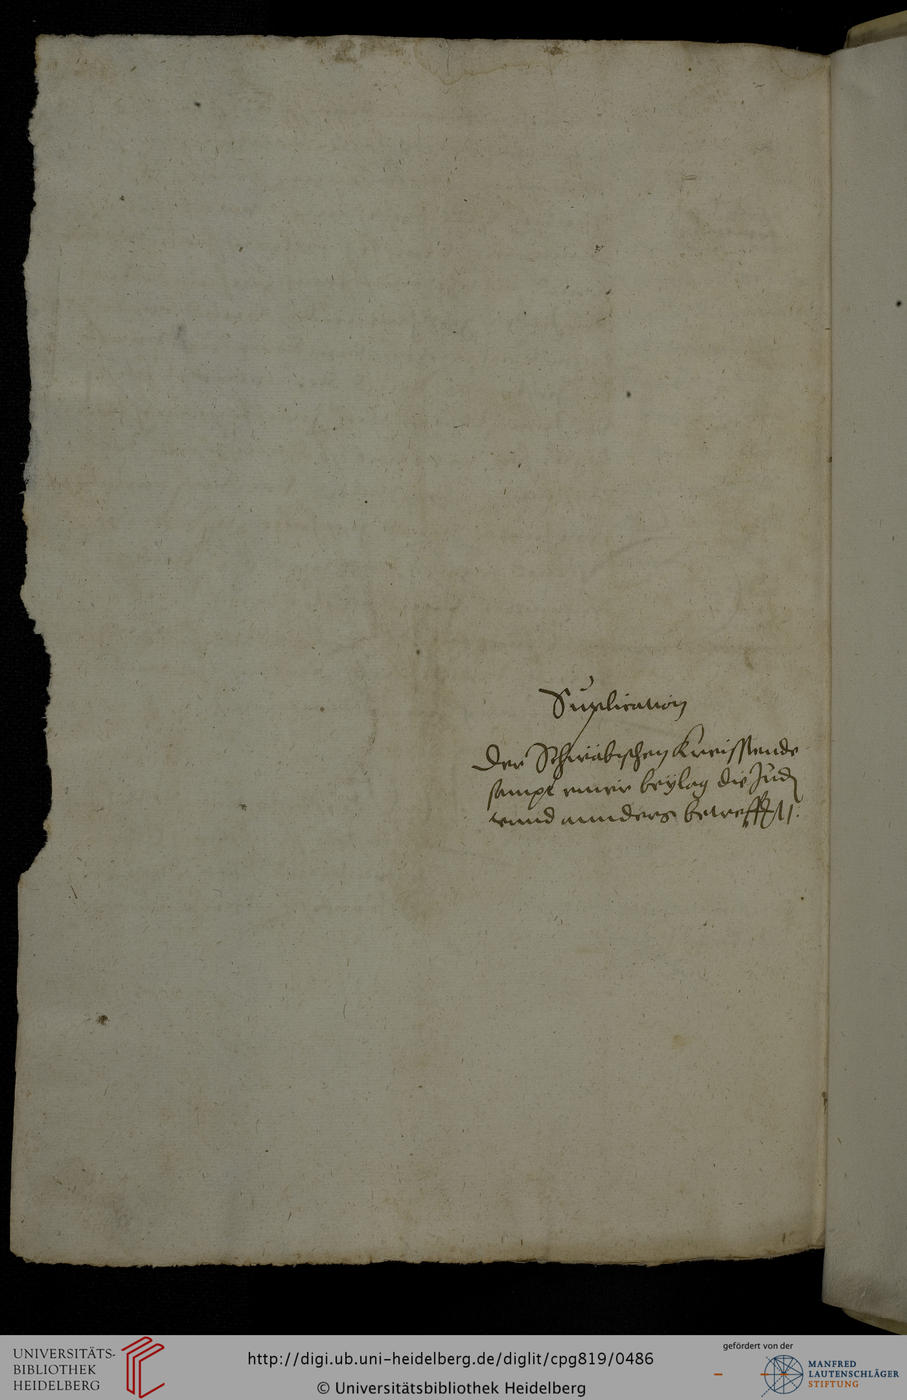 Suplication
der Schwäbischen Kreisstende
sampt einer beÿlag die Jud
vnnd annders betrefft
UNIVERSITÄTS-
BIBLIOTHEK
HEIDELBERG
http://digi.ub.uni-heidelberg.de/diglit/cpg819/0486
© Universitätsbibliothek Heidelberg
gefördert von der
MANFRED
LAUTENSCHLÄGER
STIFTUNG